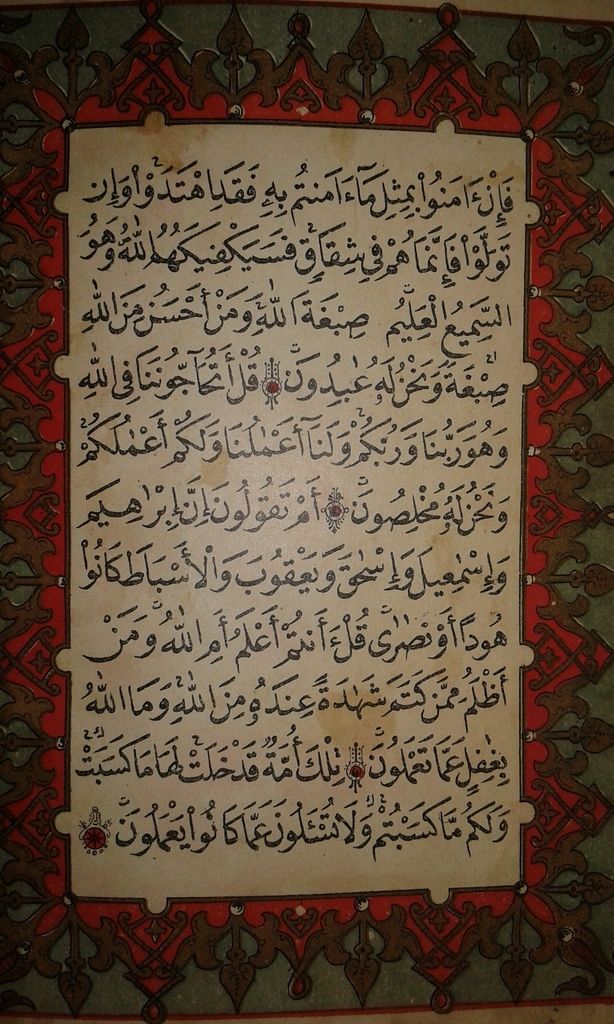 فَإِنْ ءَامَنُوا۟ بِمِثْلِ مَآ ءَامَنتُم بِهِۦ فَقَدِ ٱهْتَدَوا۟ وَّإِن
تَوَلَّوْا۟ فَإِنَّمَا هُمْ فِى شِقَاقٍ فَسَيَكْفِيكَهُمُ ٱللَّهُ وَهُوَ
ٱلسَّمِيعُ ٱلْعَلِيمُ صِبْغَةَ ٱللَّهِ وَمَنْ أَحْسَنُ مِنَ ٱللَّهِ
صِبْغَةً وَنَحْنُ لَهُۥ عَٰبِدُونَ قُلْ أَتُحَآجُّونَنَا فِى ٱللَّهِ
وَهُوَ رَبُّنَا وَرَبُّكُمْ وَلَنَآ أَعْمَٰلُنَا وَلَكُمْ أَعْمَٰلُكُمْ
وَنَحْنُ لَهُۥ مُخْلِصُونَ أَمْ تَقُولُونَ إِنَّ إِبْرَٰهِيمَ
وَإِسْمَٰعِيلَ وَإِسْحَٰقَ وَيَعْقُوبَ وَٱلْأَسْبَاطَ كَانُوا۟
هُودًا أَوْ نَصَٰرَىٰ قُلْ ءَأَنتُمْ أَعْلَمُ أَمِ ٱللَّهُ وَمَنْ
أَظْلَمُ مِمَّن كَتَمَ شَهَٰدَةً عِندَهُۥ مِنَ ٱللَّهِ وَمَا ٱللَّهُ
بِغَٰفِلٍ عَمَّا تَعْمَلُونَ تِلْكَ أُمَّةٌ قَدْ خَلَتْ لَهَا مَا كَسَبَتْ
وَلَكُم مَّا كَسَبْتُمْ وَلَا تُسْـَٔلُونَ عَمَّا كَانُوا۟ يَعْمَلُونَ